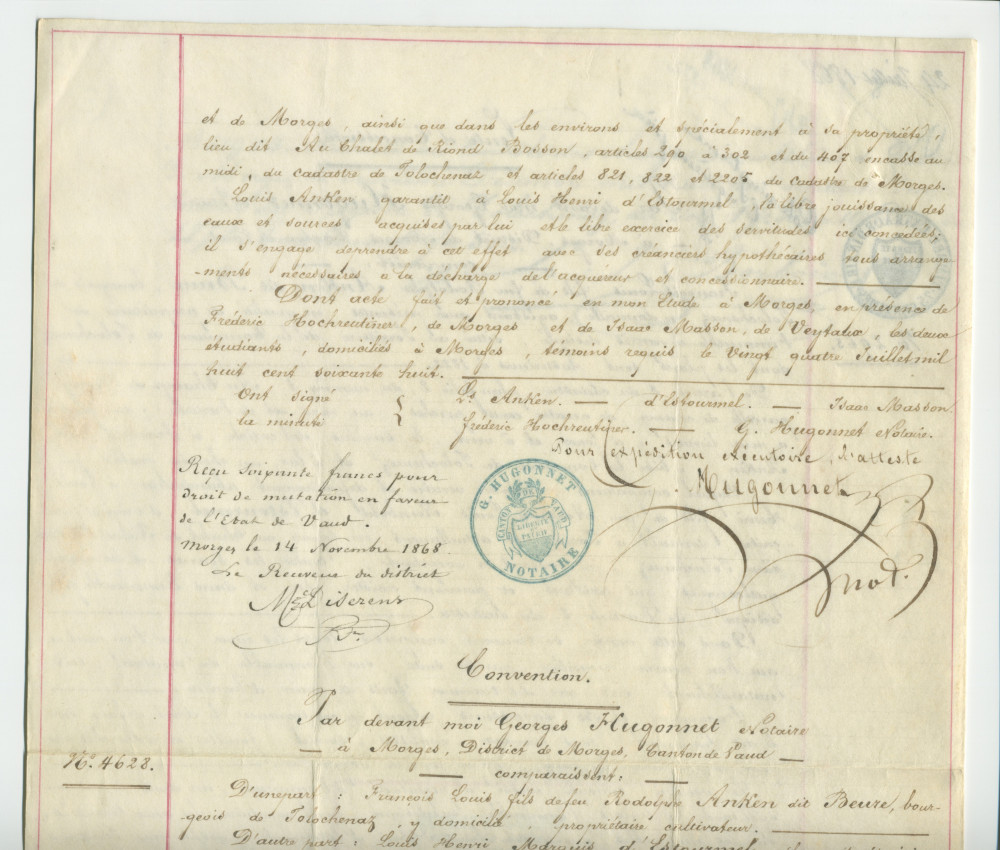 et de Morges, ainsi que dans les environs et spécialement à sa propriété,
lieu dit Au Chalet de Riond Bosson, articles 290 à 302 et du 407 encasse au
midi, du cadastre de Tolochenaz et articles 821, 822 et 2205 du cadastre de Morges.
Louis Anken garantit à Louis Henri d'Estourmel, la libre jouissance des
eaux et sources acquises par lui et le libre exercice des servitudes ici concédées;
il s'engage deprendre à cet effet avec ses créanciers hypothécaires tous arrange-
-ments nécessaires a la décharge de l'acquéreur et concessionnaire.
Dont acte fait et prononcé en mon Etude à Morges, en présence de
Fréderic Hochreutiner, de Morges et de Isaac Masson, de Veytaux, les deux
étudiants, domiciliés à Morges, témoins requis le vingt quatre Juillet mil
huit cent soixante huit.
Ont signé
la minute
Ls Anken. — d'Estourmel. — Isaac Masson
fréderic Hochreutiner. — G. Hugonnet Notaire.
Pour expédition exécutoire, l'atteste
Hugonnet
not.
Reçu soixante francs pour
droit de mutation en faveur
de l'Etat de Vaud.
Morges le 14 Novembre 1868.
Le Receveur du district
Diserens
G. HUGONNET
NOTAIRE
CANTON DE VAUD
LIBERTÉ
ET
PATRIE
Convention.
Par devant moi Georges Hugonnet Notaire
— à Morges, District de Morges, Canton de Vaud —
— comparaissent: —
No. 4628.
D'unepart : François Louis fils defeu Rodolphe Anken dit Beure, bour-
-geois de Tolochenaz, y domicilié, propriétaire cultivateur.
D'autre part : Louis Henri Marquis d'Estourmel